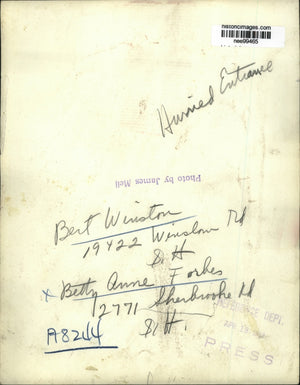 nissoncimages.com
nee99465
Hurried Entrance
Photo by James Meli
Bert Winston
19422 Winslow Rd
S. H.
x Betty Anne Forbes
12771 Sherbrooke Rd
S. H.
A8244
REFERENCE DEPT.
PRESS